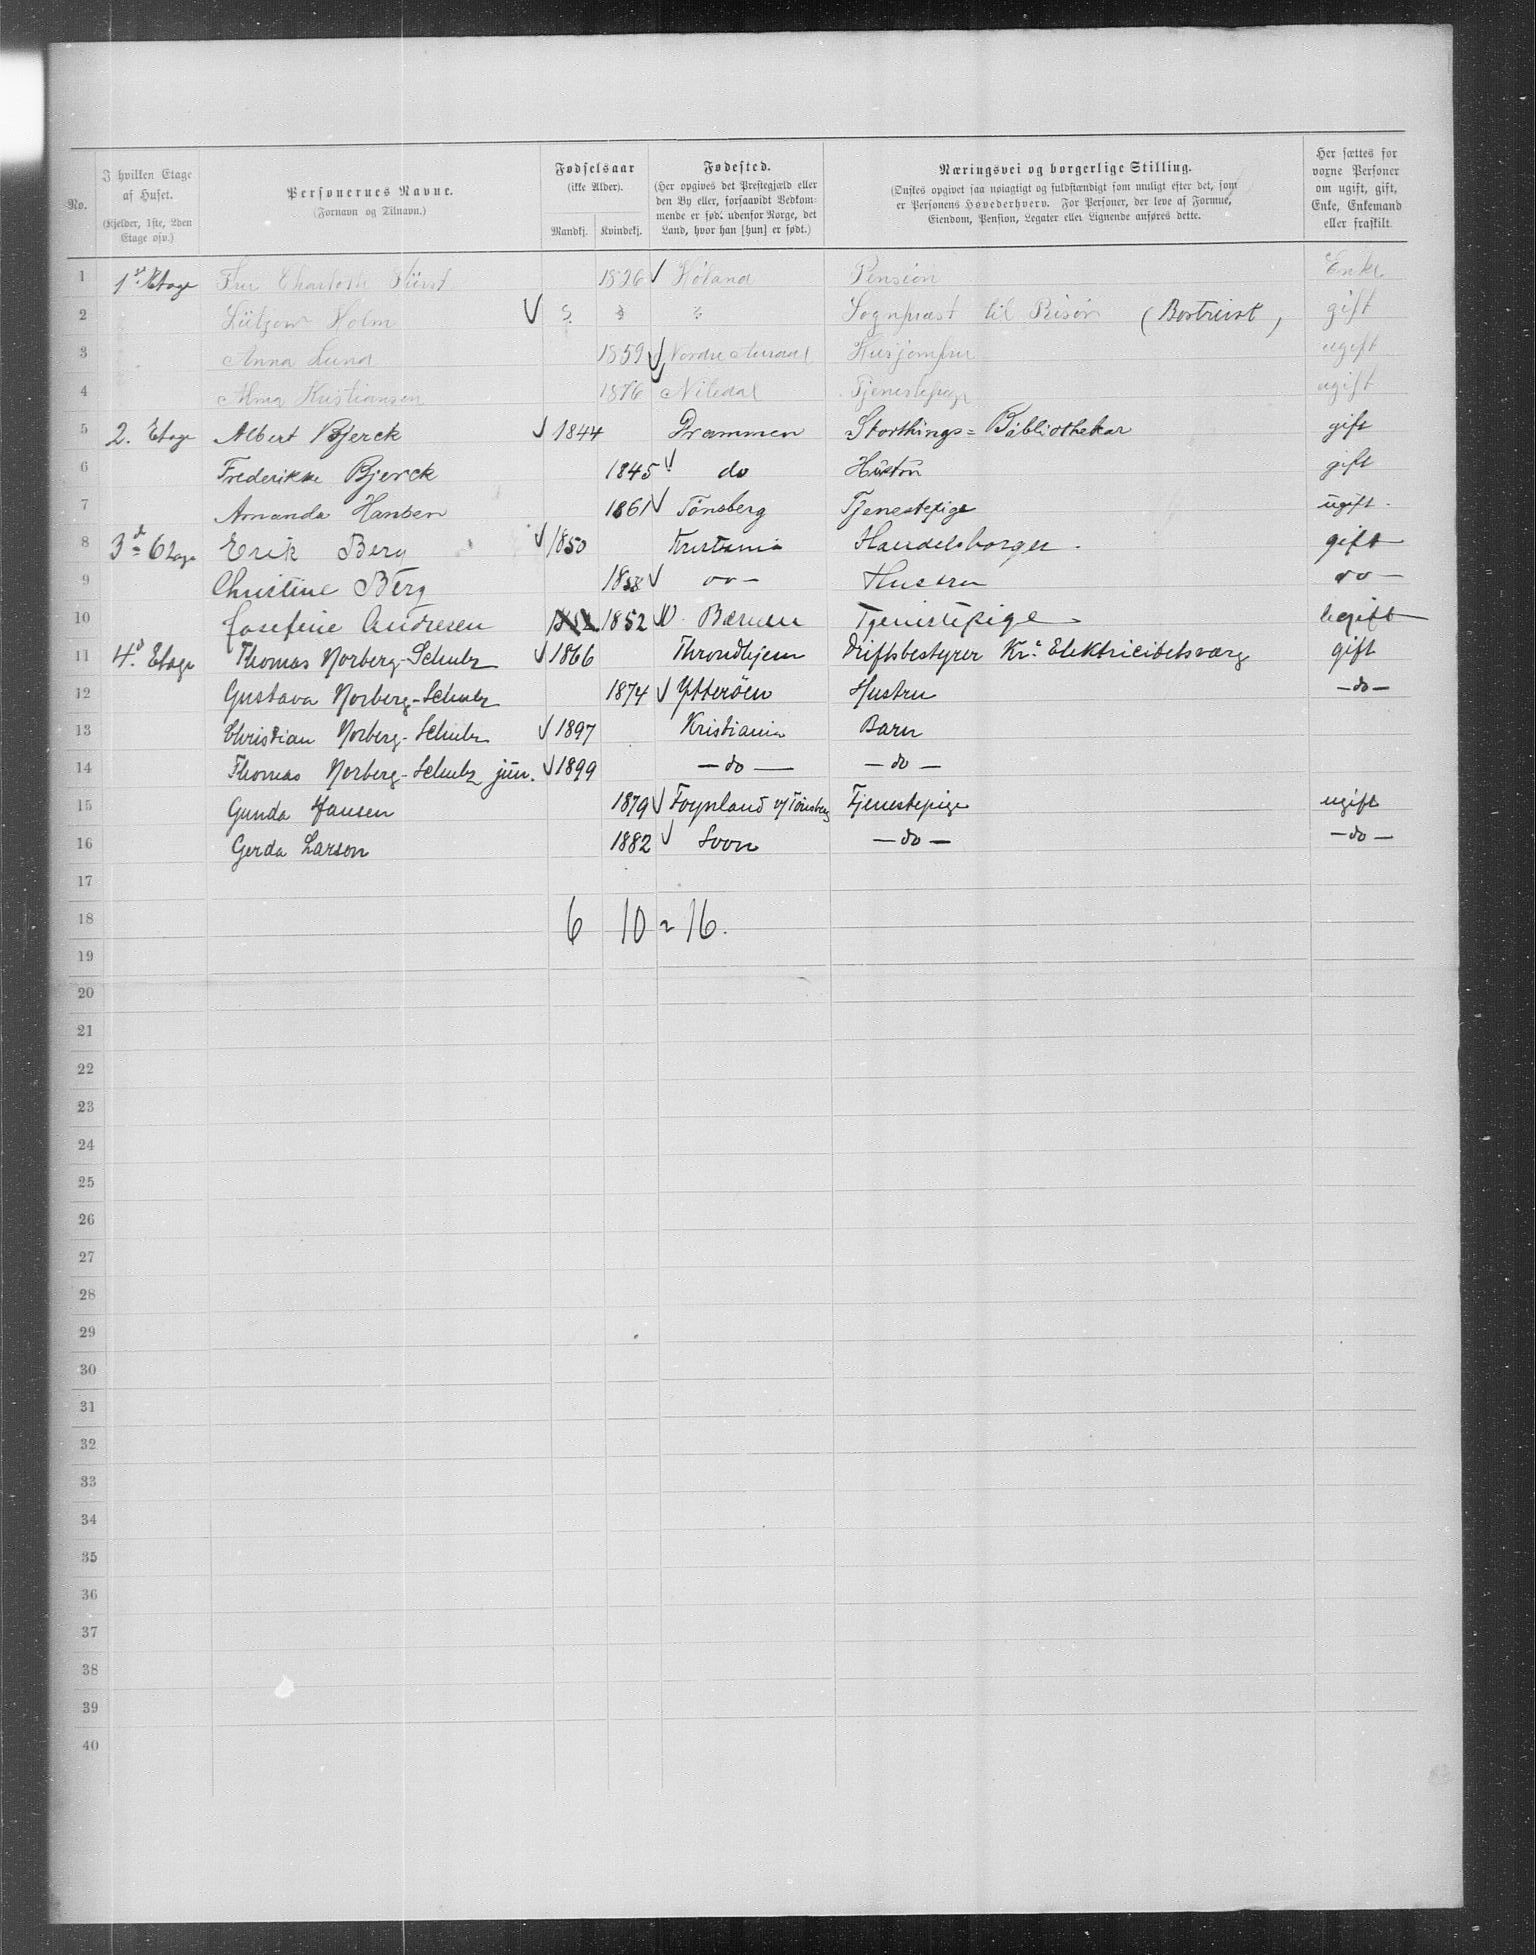 No. | I hvilken Etage af Huset. (Kjelder, 1ste, 2den Etage osv.) | Personernes Navne. (Fornavn og Tilnavn.) | Fødselsaar (ikke Alder). Mandkj. Kvindekj. | Fødested. (Her opgives det Prestegjæld eller den By eller, forsaavidt Vedkommende er fød. udenfor Norge, det Land, hvor han [hun] er født.) | Næringsvei og borgerlige Stilling. (Ønskes opgivet saa nøiagtigt og fuldstændigt som muligt efter det, som er Personens Hovederhverv. For Personer, der leve af Formue, Eiendom, Pension, Legater eller Lignende anføres dette. | Her sættes for voxne Personer om ugift, gift, Enke, Enkemand eller fraskilt.
1 1ste Etage Fru Charlotte Fürst 1826 Høland Pension Enke
2 Lützow Holm ? ? ? Sognpræst til Risør ( gift
3 Anna Lund 1859 Nordre Aurdal Husjomfru ugift
4 Alma Kristiansen 1876 Nitedal Tjenestepige ugift
5 2. Etage Albert Bjerck 1844 Drammen Storthings= Bibliothekar gift
6 Frederikke Bjerck 1845 do Hustru gift
7 Amanda Hansen 1861 Tönsberg Tjenestepige ugift.
8 3d Etage Erik Berg 1850 Kristiania Handelsborger. gift
9 Christine Berg 1858 do — Hustru do —
10 Josefine Andresen 1852 1852 Bærum Tjenestepige ugift
11 4d. Etage Thomas Norberg-Schulz 1866 Throndhjem Driftsbestyrer Kr.a Elektricitetsværg gift
12 Gustava Norberg-Schulz 1874 Ytterøen Hustru — do —
13 Christian Norberg-Schulz 1897 Kristiania Barn
14 Thomas Norberg-Schulz jün. 1899 — do — — do —
15 Gunda Hansen 1879 Foynland v/Tönsberg Tjenestepige ugift
16 Gerda Larson 1882 — do — — do —
17
18 6 10 = 16.
19
20
21
22
23
24
25
26
27
28
29
30
31
32
33
34
35
36
37
38
39
40